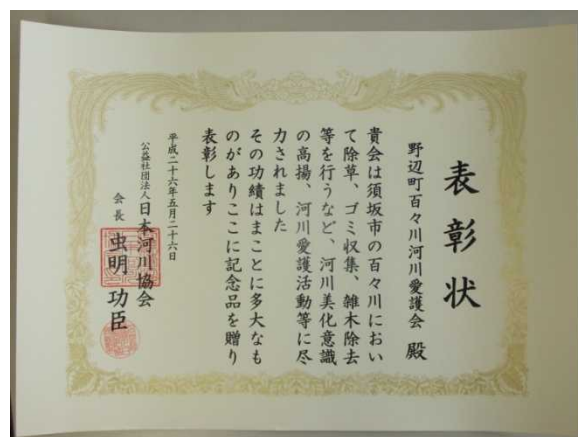 表彰状
野辺町百々川河川愛護会 殿
貴会は須坂市の百々川におい
て除草、ゴミ収集、雑木除去
等を行うなど、河川美化意識
の高揚、河川愛護活動等に尽
力されました
その功績はまことに多大なも
のがありここに記念品を贈り
表彰します
平成二十六年五月二十六日
公益社団法人日本河川協会
会長 虫明功臣